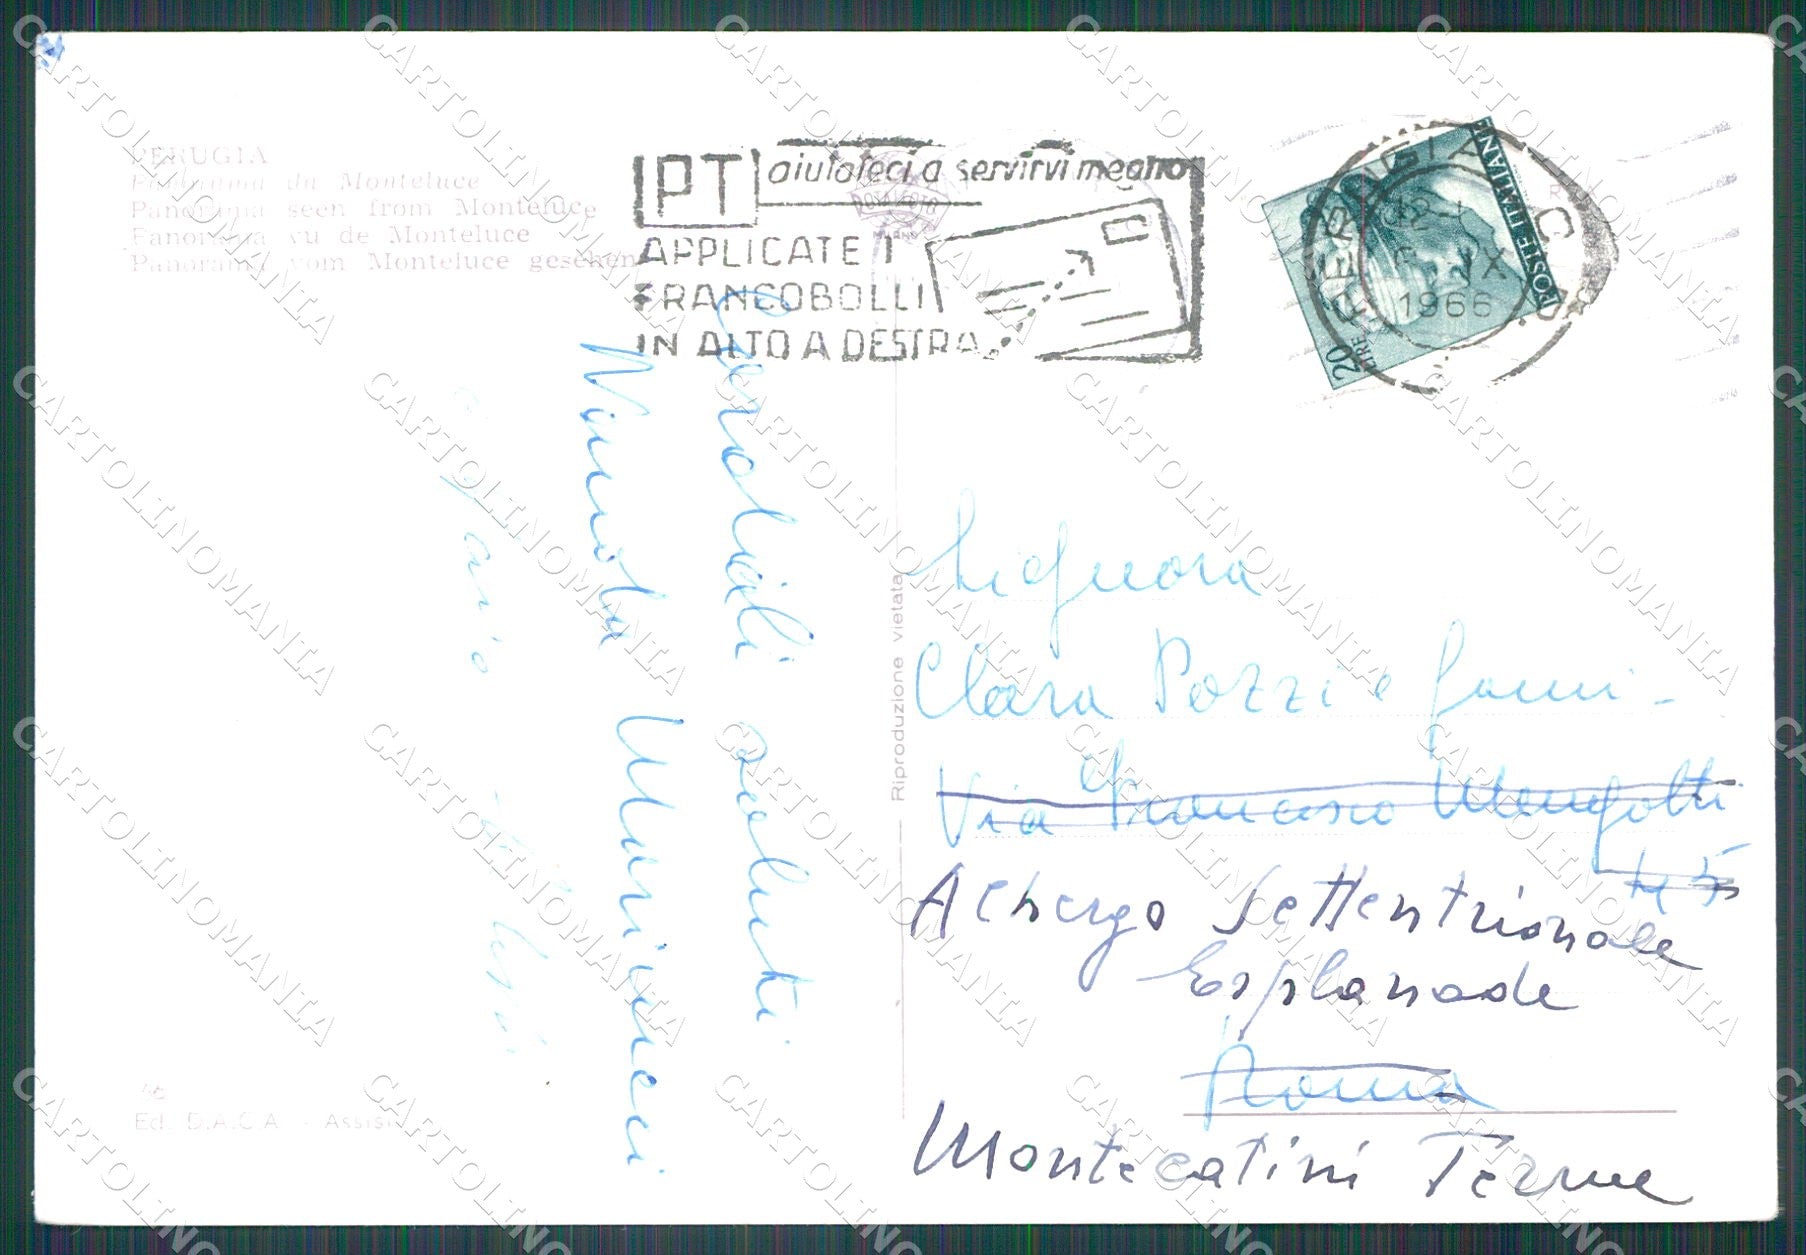 PERUGIA
Panorama da Monteluce
Panorama seen from Monteluce
Panorama vu de Monteluce
Panorama vom Monteluce gesehen
PT aiutateci a servirvi meglio
APPLICATE I
FRANCOBOLLI
IN ALTO A DESTRA
PERUGIA C.
1966
POSTE ITALIANE
20
LIRE
Cordiali saluti
Riproduzione vietata
Signora
Clara Pozzi e fami-
Via Francesco Mengotti
N 5
Albergo Settentrionale
Esplanade
Roma
Montecatini Terme
46
Ed. D.A.C.A. - Assisi
CARTOLINOMANIA